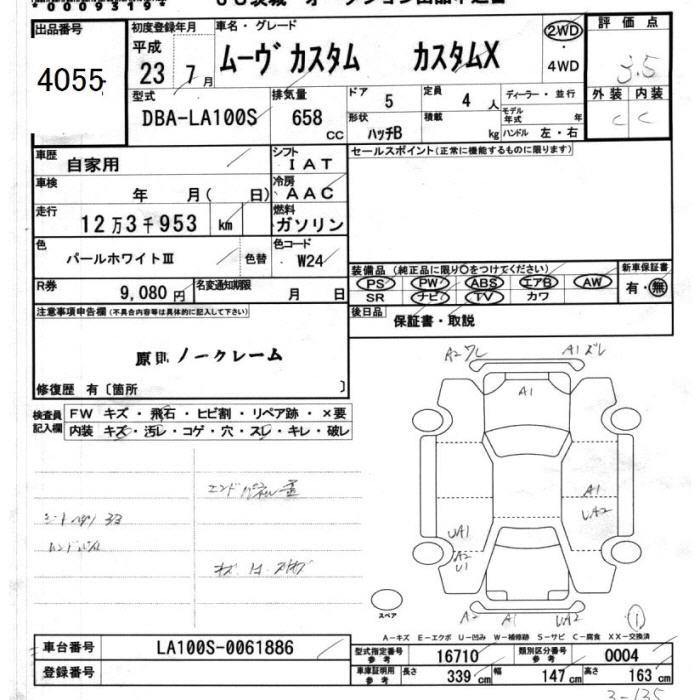 00093194
出品番号
4055
初度登録年月
平成
23 7月
車名・グレード
ムーヴ カスタム カスタムX
2WD
・
4WD
評価点
3.5
外装 内装
C C
型式
DBA-LA100S
排気量
658 cc
ドア 5
定員 4 人
ディーラー・並行
モデル年式 年
形状 ハッチB
積載 kg
ハンドル 左・右
車歴 自家用
シフト IAT
セールスポイント(正常に機能するものに限ります)
車検 年 月( 日)
冷房 AAC
走行 12万3千953 km
燃料 ガソリン
色 パールホワイトⅢ 色替
色コード W24
装備品(純正品に限り○をつけてください)
新車保証書
PS PW ABS エアB AW
SR ナビ TV カワ
有・無
R券 9,080 円
名変通知期限 月 日
後日品 保証書・取説
注意事項申告欄(不具合内容等は具体的に記入して下さい)
原則ノークレーム
修復歴 有〔箇所 〕
検査員記入欄
FW キズ・飛石・ヒビ割・リペア跡・×要
内装 キズ・汚レ・コゲ・穴・スレ・キレ・破レ
A2ワレ A1ズレ
A1
A1
UA2
UA1
A2
U1
A2 A1 UA2
スペア
①
A-キズ E-エクボ U-凹み W-補修跡 S-サビ C-腐食 XX-交換済
車台番号 LA100S-0061886
登録番号
型式指定番号 参考 16710
類別区分番号 参考 0004
車庫証明用 参考 長さ 339 cm 幅 147 cm 高さ 163 cm
3-135